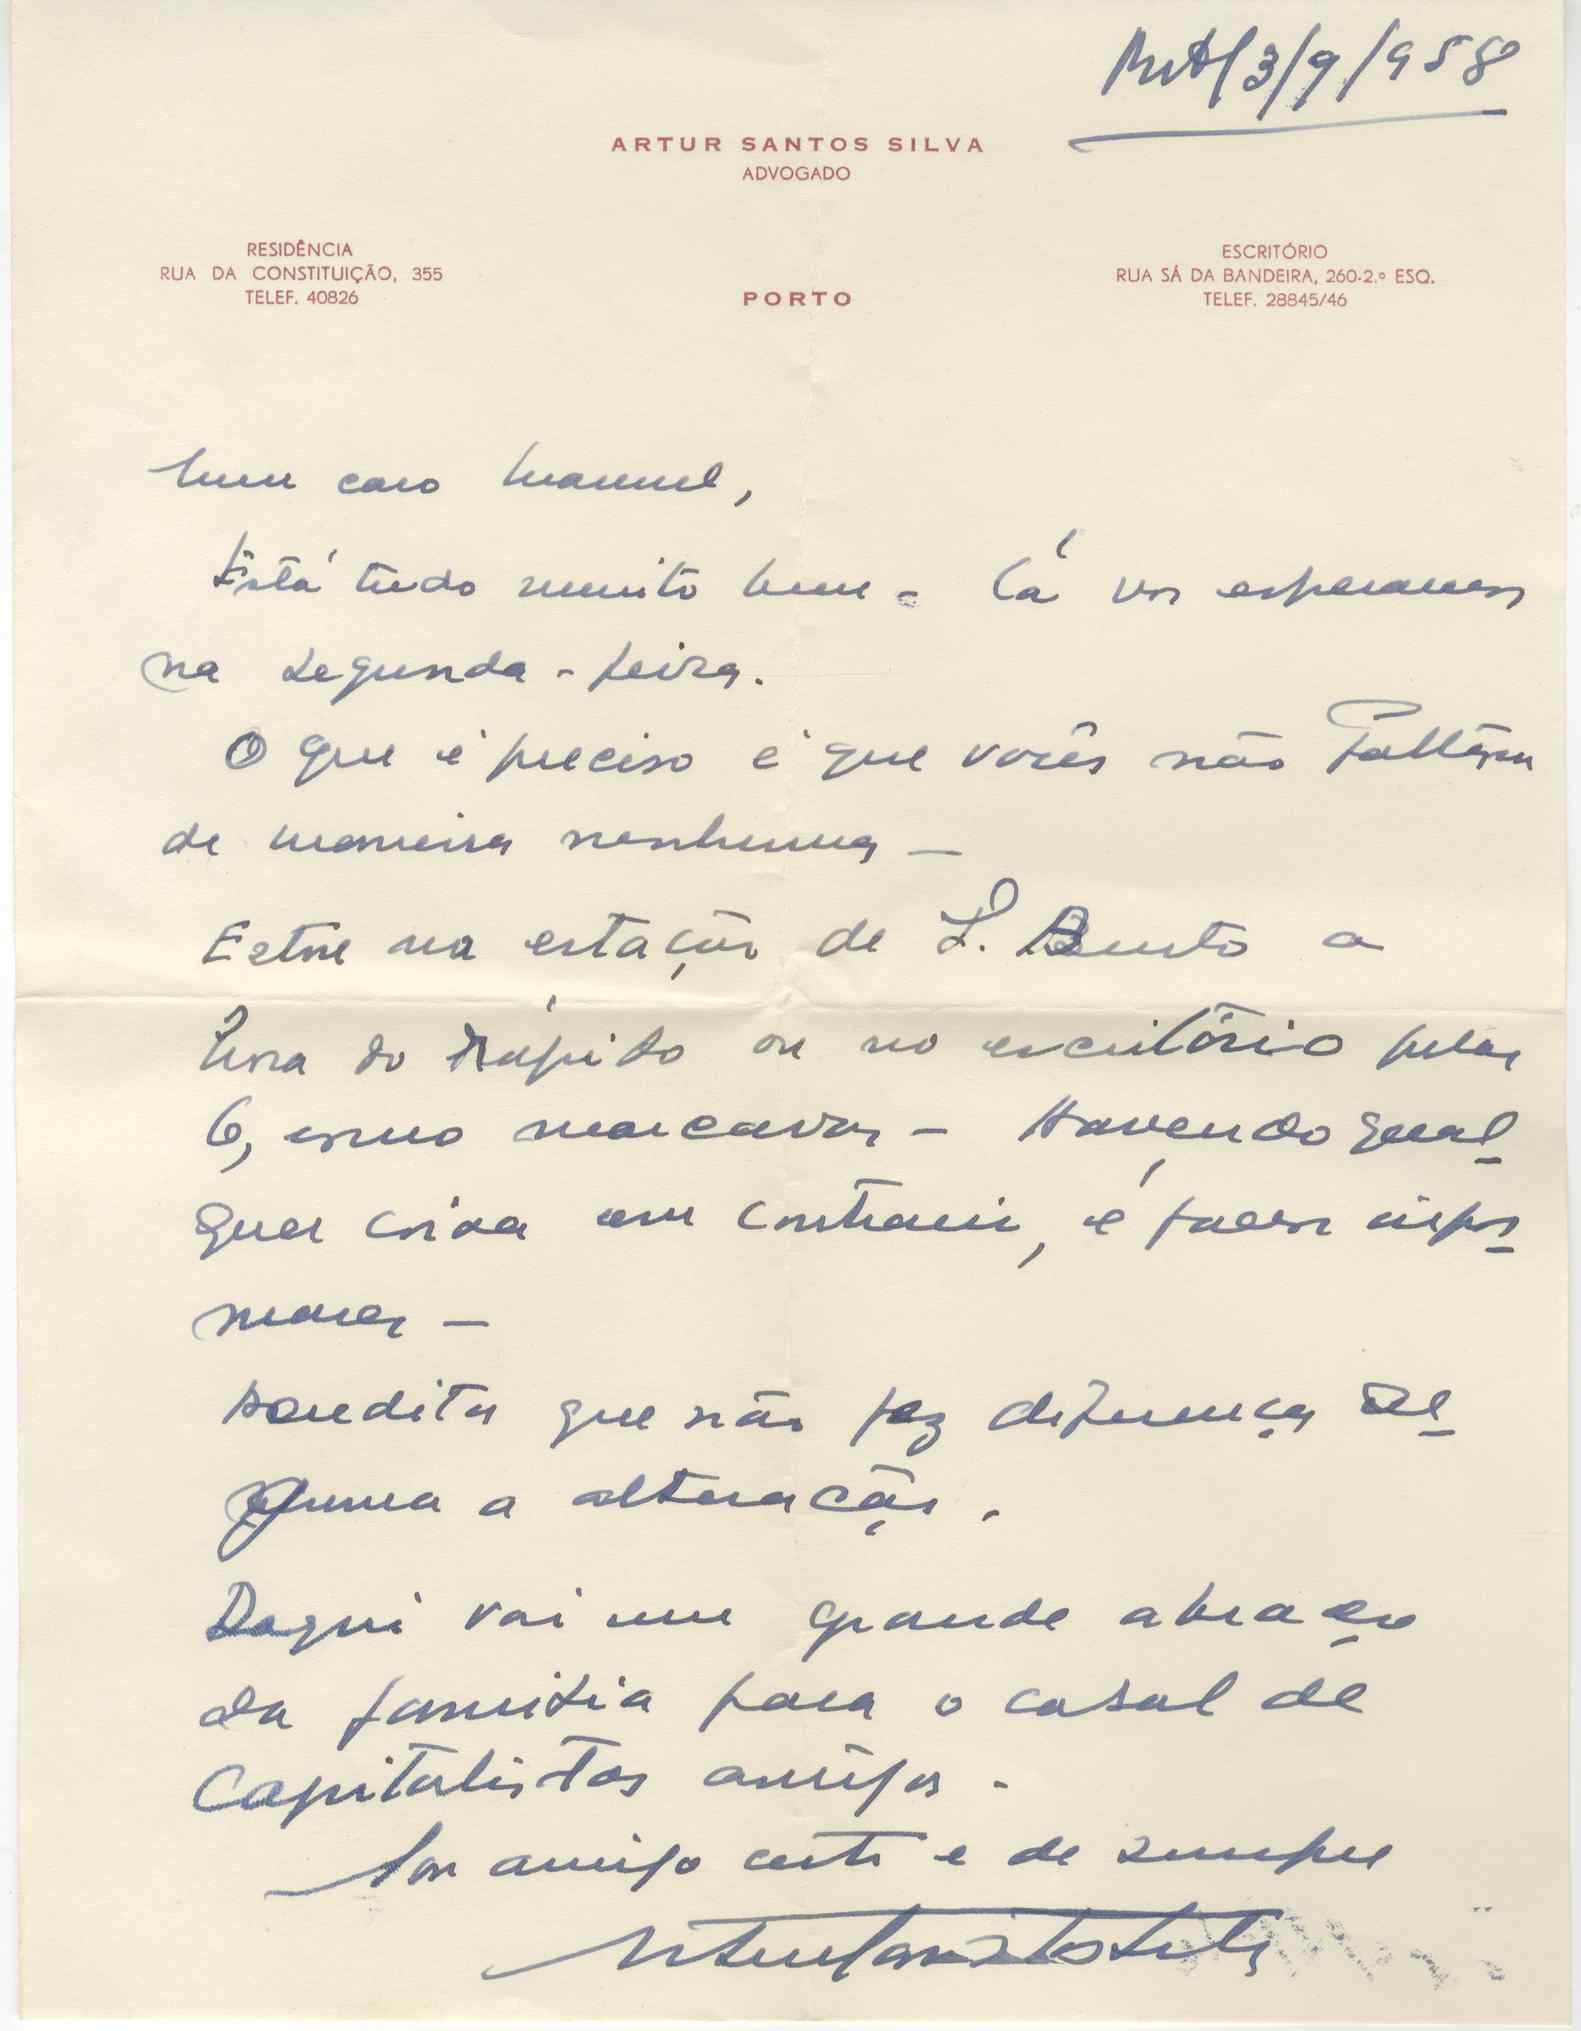 3/9/958
ARTUR SANTOS SILVA
ADVOGADO
RESIDÊNCIA
RUA DA CONSTITUIÇÃO, 355
TELEF. 40826
PORTO
ESCRITÓRIO
RUA SÁ DA BANDEIRA, 260-2.º ESQ.
TELEF. 28845/46
Meu caro Manuel,
Está tudo muito bem. Cá vos esperamos
na segunda-feira.
O que é preciso é que vocês não faltem
de maneira nenhuma —
na estação de S. Bento a
hora do rápido ou no escritório pelas
6, como marcavas — Havendo qual-
quer coisa em contrario, é favor infor-
mares —
Acredita que não faz diferença al-
guma a alteração.
Daqui vai um grande abraço
da familia para o casal de
Capitalistas amigos.
amigo certo e de sempre
Artur Santos Silva